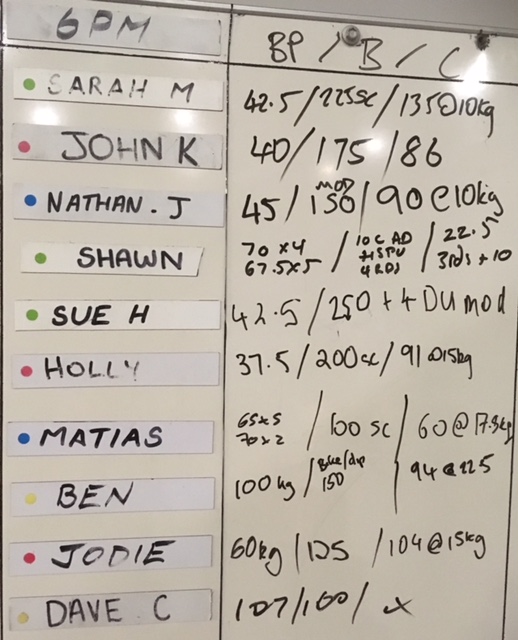 6PM BP / B / C
SARAH M 42.5 / 225SC / 135@10kg
JOHN K 40 / 175 / 86
NATHAN. J 45 / 150 MOD / 90 @10kg
SHAWN 70 x4 / 10 C AD / 22.5
67.5x5 HSPU 3rds + 10
4 RDS
SUE H 42.5 / 250 + 4 DU mod
HOLLY 37.5 / 200sc / 91 @15kg
MATIAS 65x5 / 100 SC / 60 @ 17.5kg
70x2
BEN 100kg / 150 / 94 @ 22.5
JODIE 60kg / 125 / 104 @ 15kg
DAVE C 107 / 100 / x